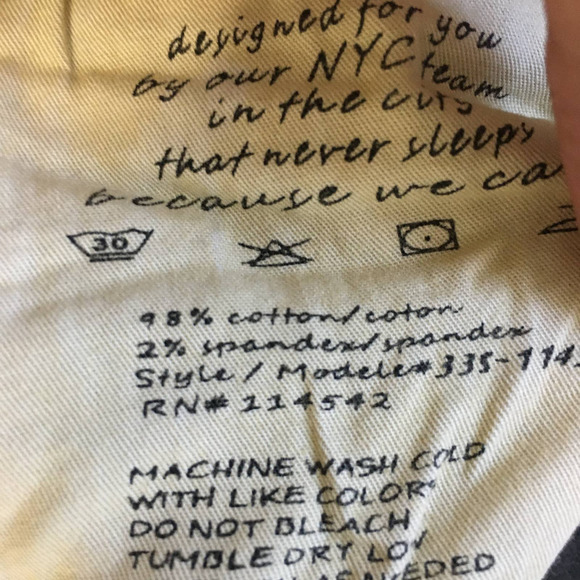 designed for you
by our NYC team
in the city
that never sleeps
because we ca
30
98% cotton/coton
2% spandex/spandex
Style / Modele# 335-114
RN# 114542
MACHINE WASH COLD
WITH LIKE COLOR
DO NOT BLEACH
TUMBLE DRY LOW
AS NEEDED